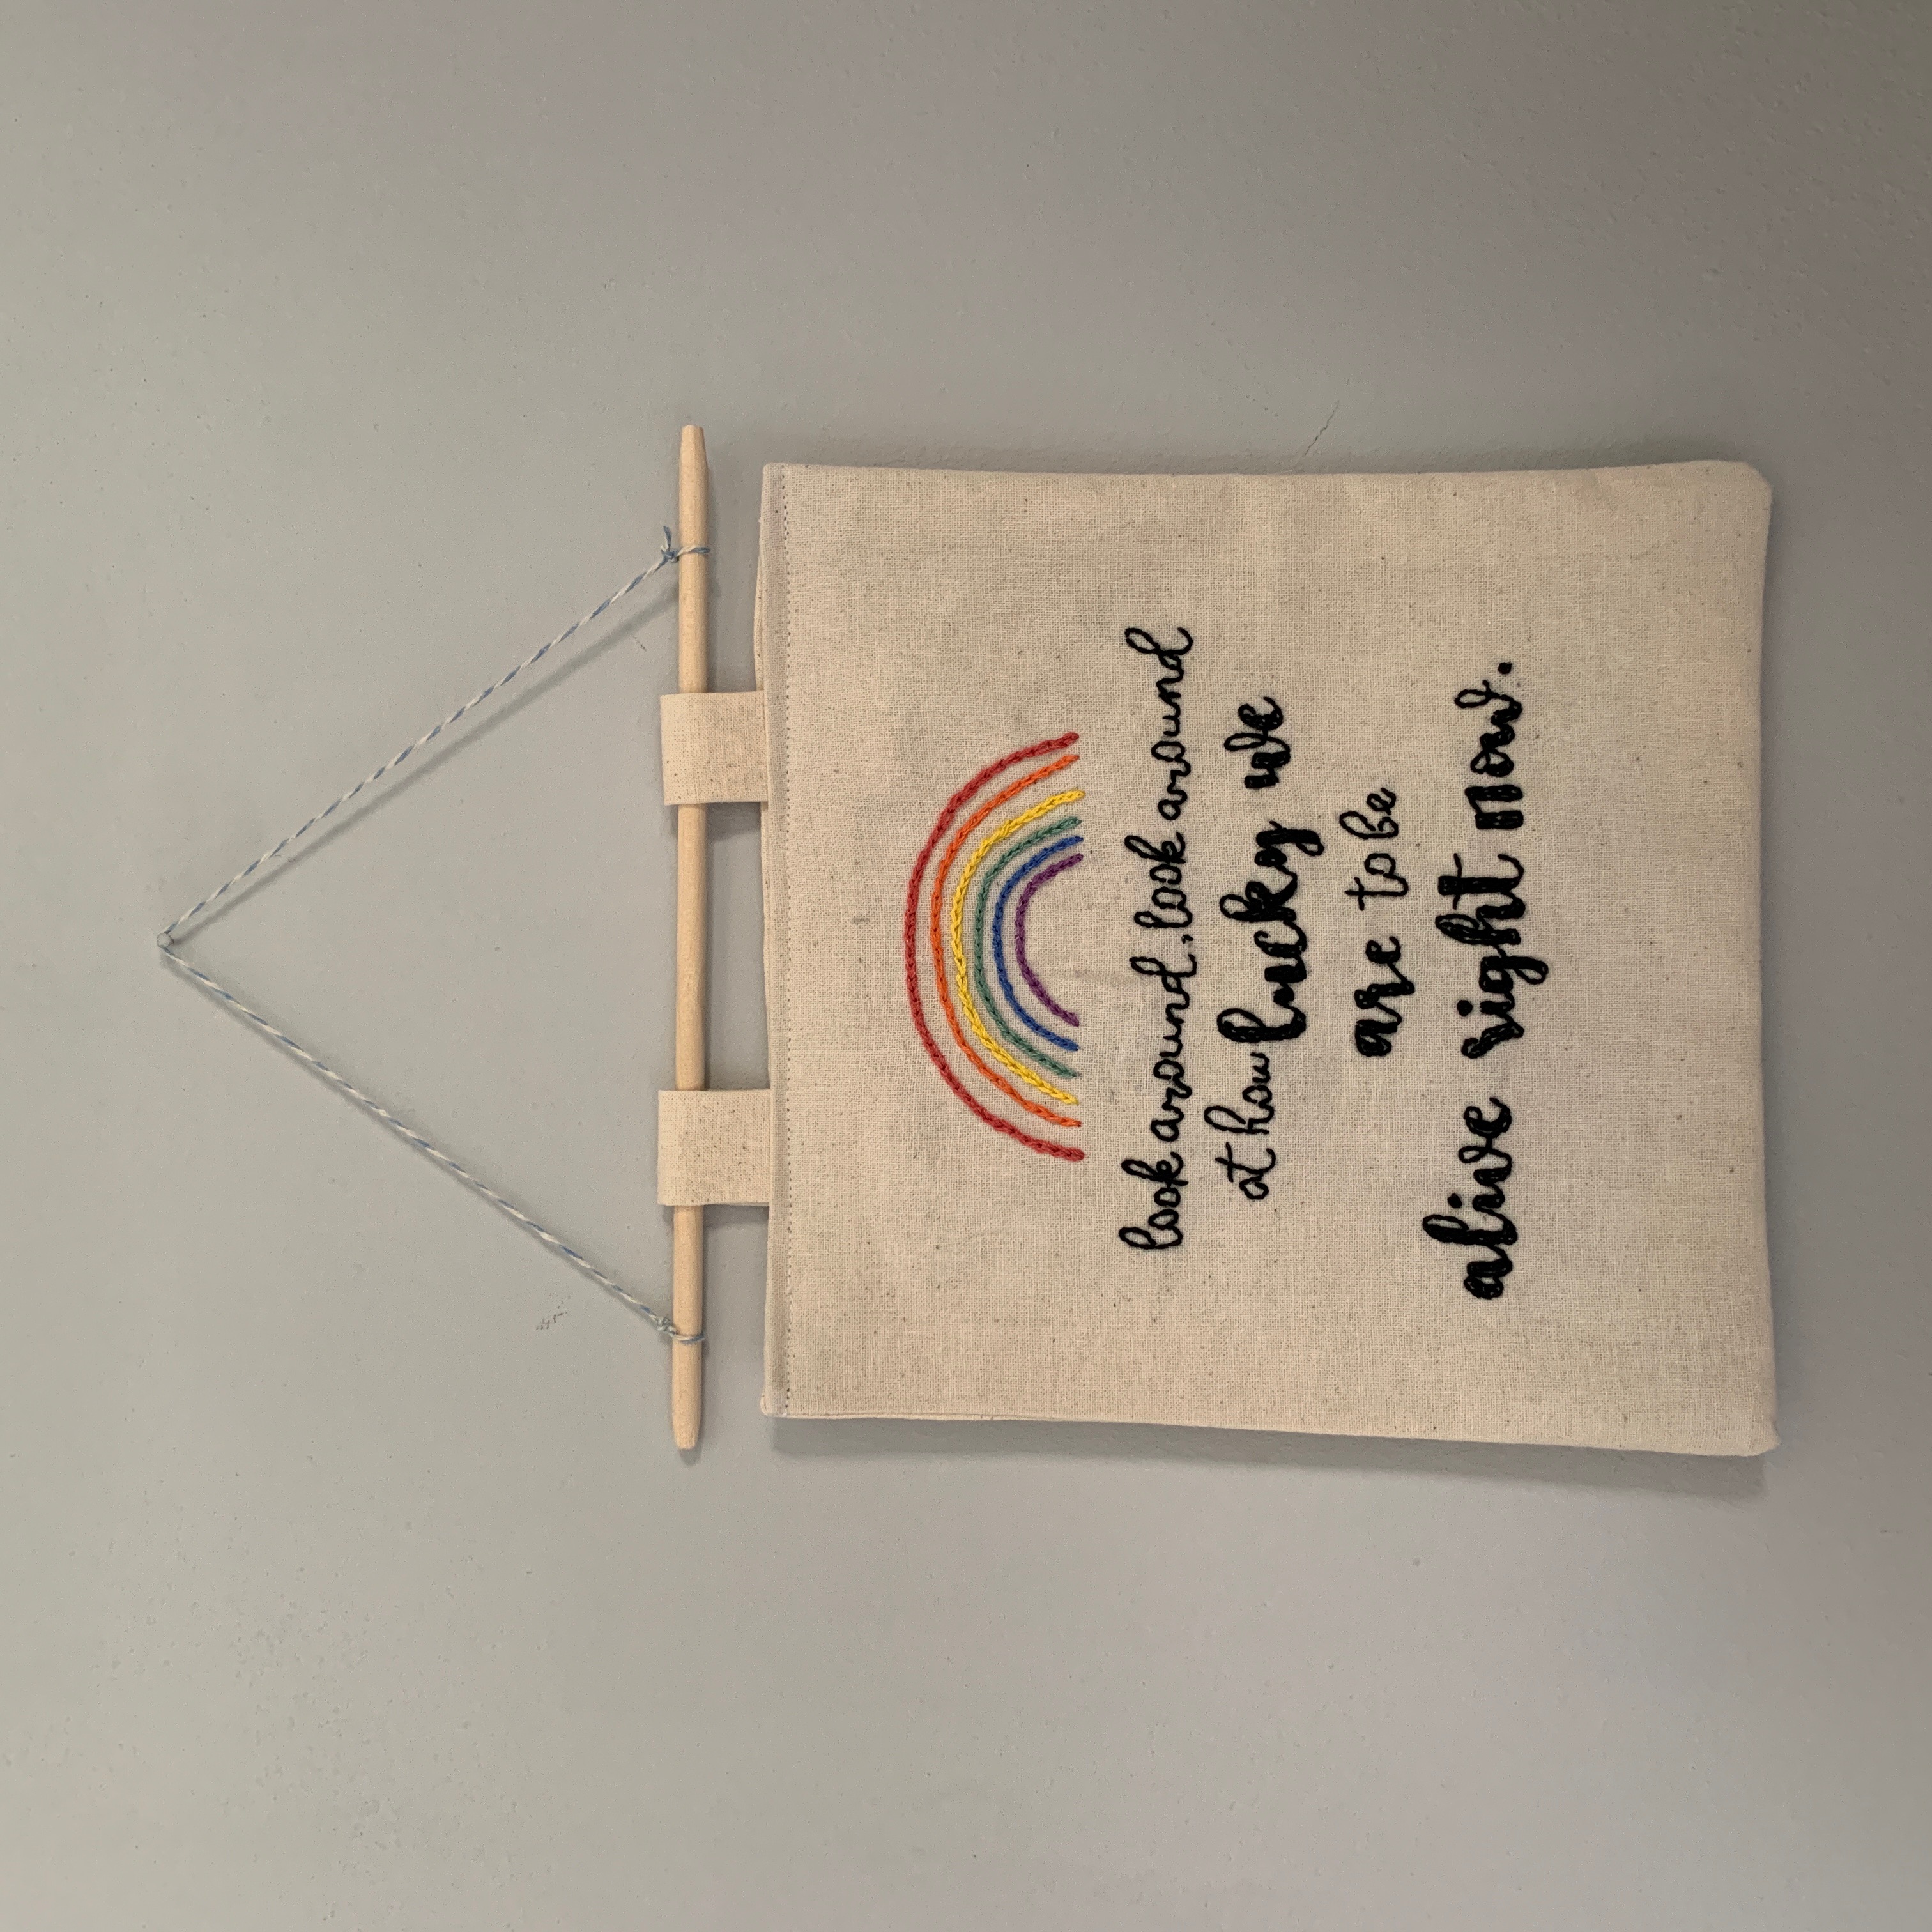 look around, look around
at how lucky we
are to be
alive right now.